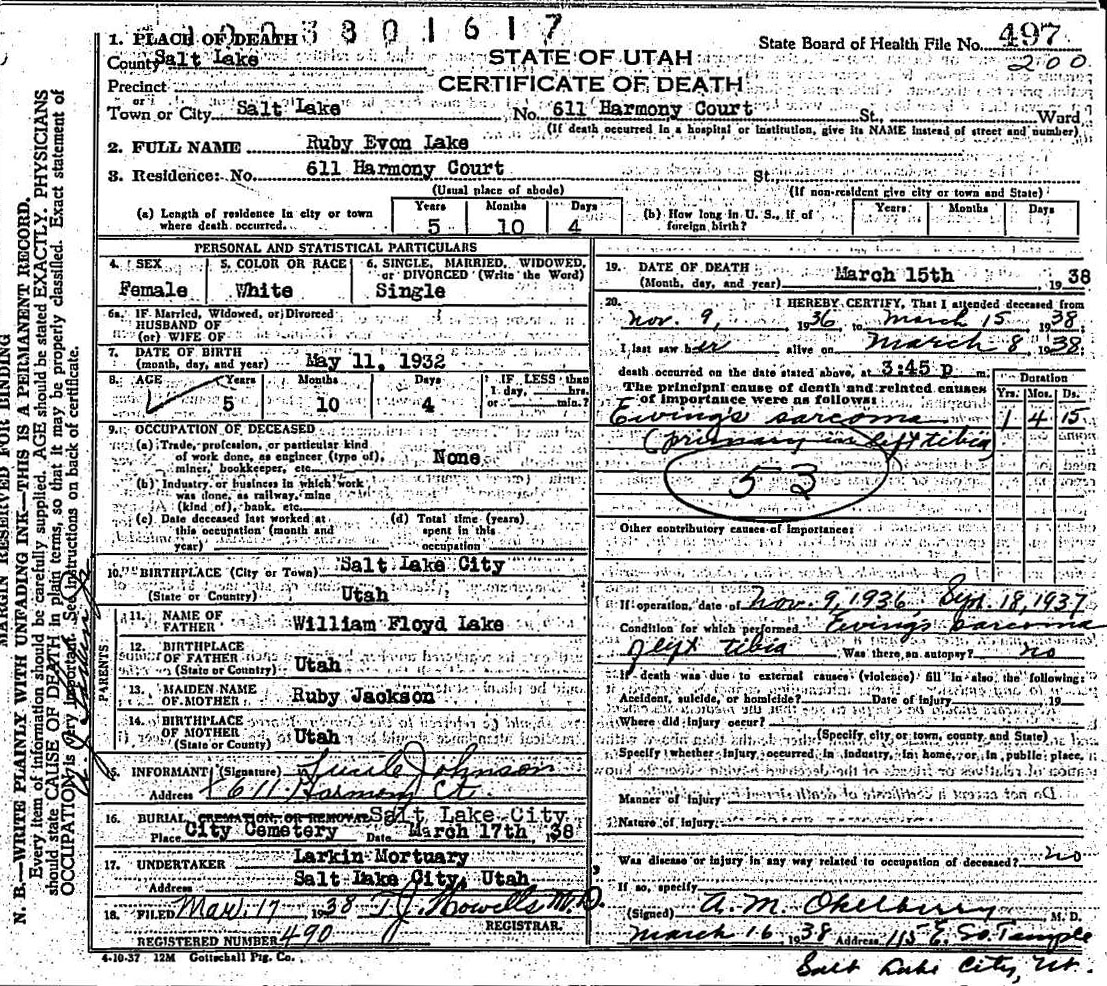 1003801617
1. PLACE OF DEATH
County Salt Lake
STATE OF UTAH
CERTIFICATE OF DEATH
State Board of Health File No. 497
200
Precinct
or
Town or City Salt Lake No. 611 Harmony Court St., Ward
(If death occurred in a hospital or institution, give its NAME instead of street and number)
2. FULL NAME Ruby Evon Lake
3. Residence: No. 611 Harmony Court St.
(Usual place of abode) (If non-resident give city or town and State)
(a) Length of residence in city or town where death occurred. Years 5 Months 10 Days 4
(b) How long in U. S., if of foreign birth? Years Months Days
PERSONAL AND STATISTICAL PARTICULARS
4. SEX Female
5. COLOR OR RACE White
6. SINGLE, MARRIED, WIDOWED, or DIVORCED (Write the Word) Single
6a. IF Married, Widowed, or Divorced
HUSBAND OF
(or) WIFE OF
7. DATE OF BIRTH
(month, day, and year) May 11, 1932
8. AGE Years 5 Months 10 Days 4 IF LESS than 1 day, hrs. or min.?
9. OCCUPATION OF DECEASED
(a) Trade, profession, or particular kind
of work done, as engineer (type of), None
miner, bookkeeper, etc.
(b) Industry or business in which work
was done, as railway, mine
(kind of), bank, etc.
(c) Date deceased last worked at
this occupation (month and
year)
(d) Total time (years)
spent in this
occupation
10. BIRTHPLACE (City or Town) Salt Lake City
(State or Country) Utah
PARENTS
11. NAME OF FATHER William Floyd Lake
12. BIRTHPLACE OF FATHER (State or Country) Utah
13. MAIDEN NAME OF MOTHER Ruby Jackson
14. BIRTHPLACE OF MOTHER (State or Country) Utah
15. INFORMANT (Signature) Lucile Johnson
Address 611 Harmony Ct.
16. BURIAL, CREMATION, OR REMOVAL Salt Lake City
Place City Cemetery Date March 17th, 1938
17. UNDERTAKER Larkin Mortuary
Address Salt Lake City, Utah
18. FILED Mar. 17 1938 T. J. Howells M.D.
REGISTRAR.
REGISTERED NUMBER 490
4-10-37 12M Gottschall Ptg. Co.
19. DATE OF DEATH
(Month, day, and year) March 15th 1938
20. I HEREBY CERTIFY, That I attended deceased from
Nov. 9, 1936, to March 15 1938;
I last saw her alive on March 8 1938;
death occurred on the date stated above, at 3:45 p m.
The principal cause of death and related causes
of importance were as follows:
Duration
Yrs. Mos. Ds.
Ewing's sarcoma 1 4 15
(primary in left tibia)
53
Other contributory causes of importance:
If operation, date of Nov. 9, 1936, Sept. 18, 1937
Condition for which performed Ewing's sarcoma
of left tibia Was there an autopsy? no
If death was due to external causes (violence) fill in also the following:
Accident, suicide, or homicide? Date of injury 19
Where did injury occur?
(Specify city or town, county, and State)
Specify whether injury occurred in industry, in home, or in public place,
Manner of injury
Nature of injury
Was disease or injury in any way related to occupation of deceased? no
If so, specify
(Signed) A. M. Okelberry M. D.
March 16 1938 Address 115 E. So. Temple
Salt Lake City, Ut.
MARGIN RESERVED FOR BINDING
N. B.—WRITE PLAINLY WITH UNFADING INK—THIS IS A PERMANENT RECORD.
Every item of information should be carefully supplied. AGE should be stated EXACTLY. PHYSICIANS
should state CAUSE OF DEATH in plain terms, so that it may be properly classified. Exact statement of
OCCUPATION is very important. See instructions on back of certificate.